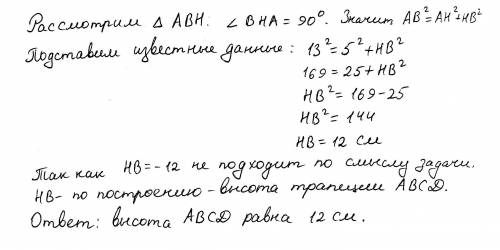 Рассмотрим △ ABH. ∠ BHA = 90°. Значит AB²=AH²+HB²
Подставим известные данные: 13² = 5² + HB²
169 = 25 + HB²
HB² = 169 - 25
HB² = 144
HB = 12 см
Так как HB = - 12 не подходит по смыслу задачи.
HB - по построению - высота трапеции ABCD.
Ответ: высота ABCD равна 12 см.